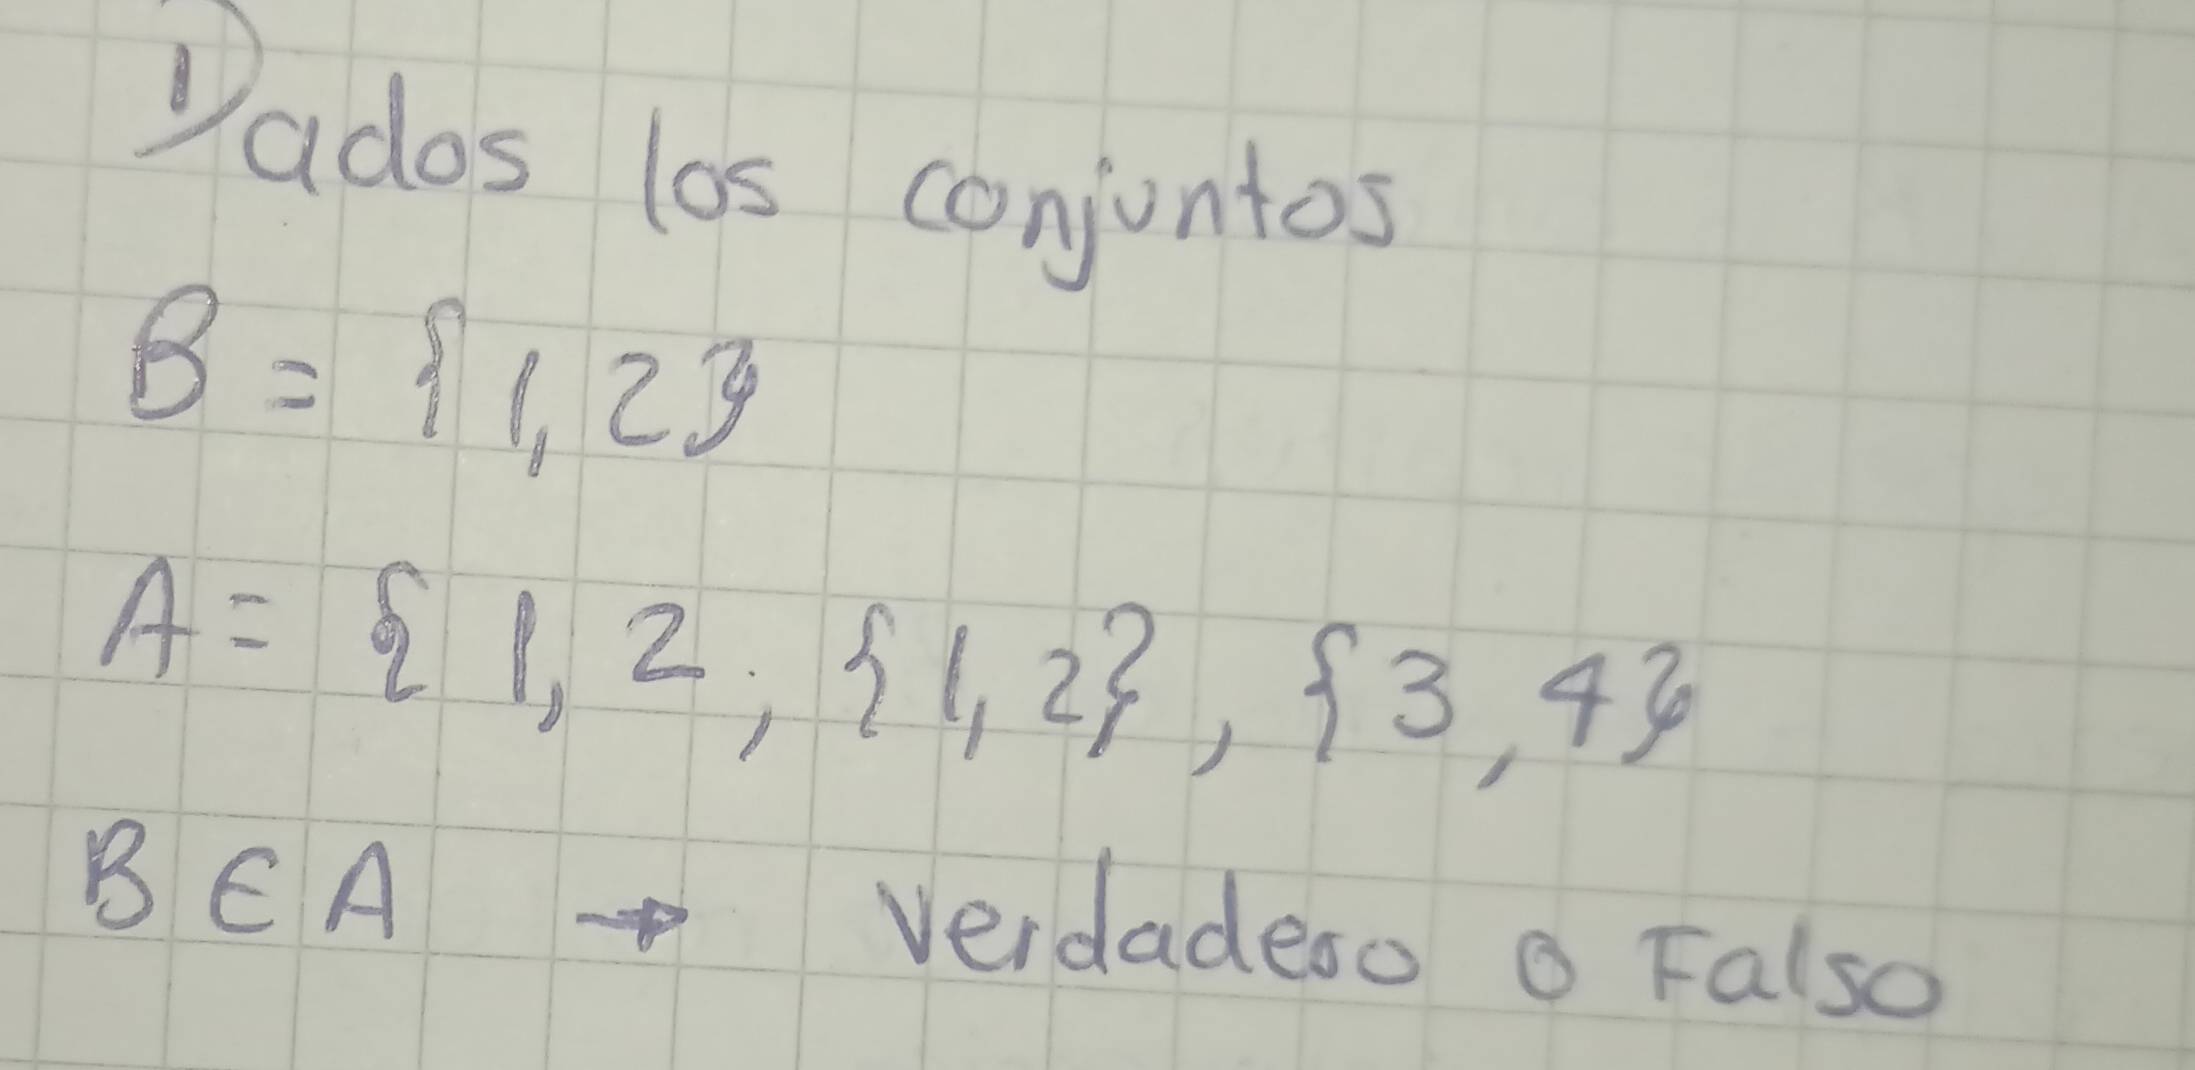 Dados los conjuntos
B = {1, 2}
A = {1, 2, {1, 2}, {3, 4}
B ∈ A → Verdadero o Falso